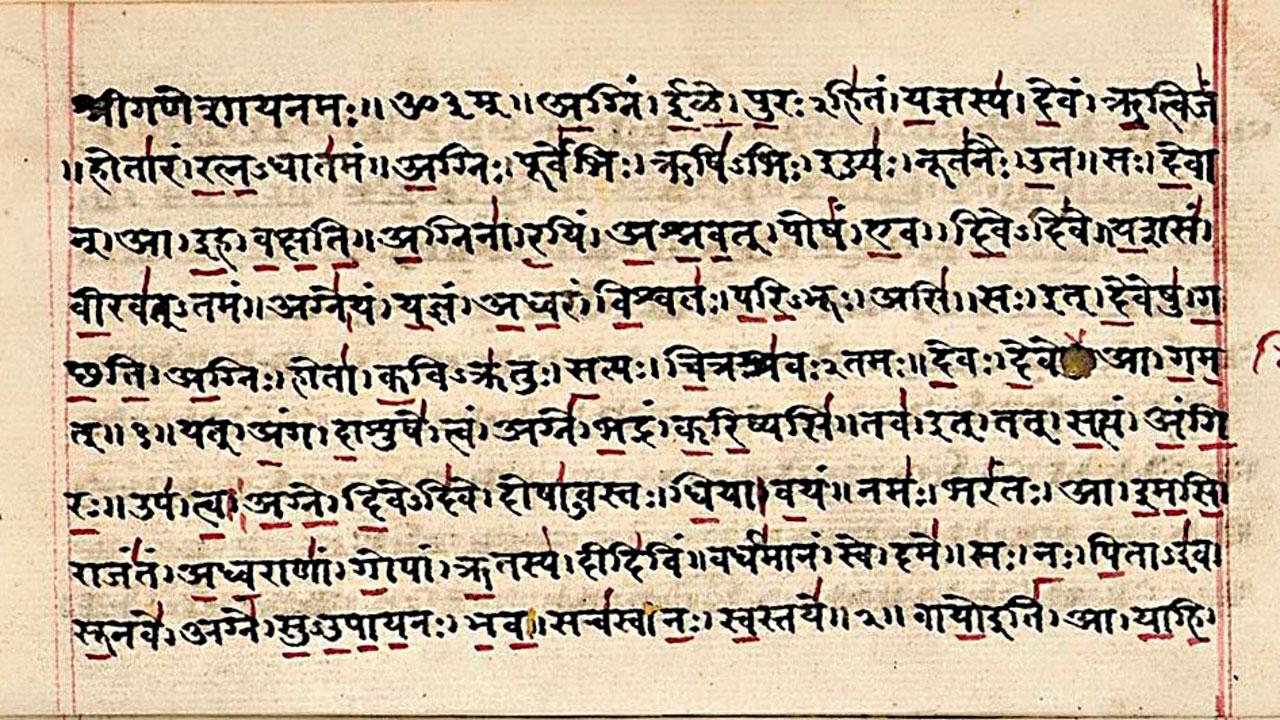 श्रीगणेशायनमः॥ॐ३म्॥अ॒ग्निं।ई॒ळे॒।पु॒रः२हि॑तं।य॒ज्ञस्य॑।दे॒वं।ऋ॒त्विजं॑
॥होता॑रं।र॒त्न॒ऽधात॑मं॥अ॒ग्निः।पूर्वे॑भिः।ऋषि॑ऽभिः।ईड्यः॑।नूत॑नैः।उ॒त॥सः।दे॒वा
न्।आ।इ॒ह।व॒क्ष॒ति॒॥अ॒ग्निना॑।र॒यिं।अ॒श्न॒व॒त्।पोषं॑।ए॒व।दि॒वेऽदि॑वे॥य॒शसं॑
वी॒रव॑त्ऽतमं॥अग्ने॑।यं।य॒ज्ञं।अ॒ध्व॒रं।वि॒श्वतः॑।प॒रि॒ऽभूः।असि॑॥सः।इत्।दे॒वेषु॑।ग॒
छ॒ति॒।अ॒ग्निः।होता॑।क॒विऽक्र॑तुः।स॒त्यः।चि॒त्रश्र॑वः२तमः॥दे॒वः।दे॒वे आ।ग॒म॒
त्॥१॥यत्।अं॒ग।दा॒शुषे॑।त्वं।अग्ने॑।भ॒द्रं।क॒रि॒ष्यसि॑॥तव॑।इत्।तत्।स॒त्यं।अं॒गि॒
रः॒॥उप॑।त्वा॒।अ॒ग्ने॒।दि॒वेऽदि॑वे।दोषा॑ऽवस्तः।धि॒या।व॒यं॥नमः॑।भरं॑तः।आ।इ॒म॒सि॒
राजं॑तं।अ॒ध्व॒राणां॑।गो॒पां।ऋ॒तस्य॑।दीदि॑विं॥वर्ध॑मानं।स्वे।दमे॑॥सः।नः॒।पि॒ताऽइ॑व।
सू॒नवे॑।अग्ने॑।सु॒ऽउ॒पा॒य॒नः।भ॒व॒॥सच॑स्व।नः॒।स्व॒स्तये॑॥२॥वायो॒इति॑।आ।या॒हि॒।